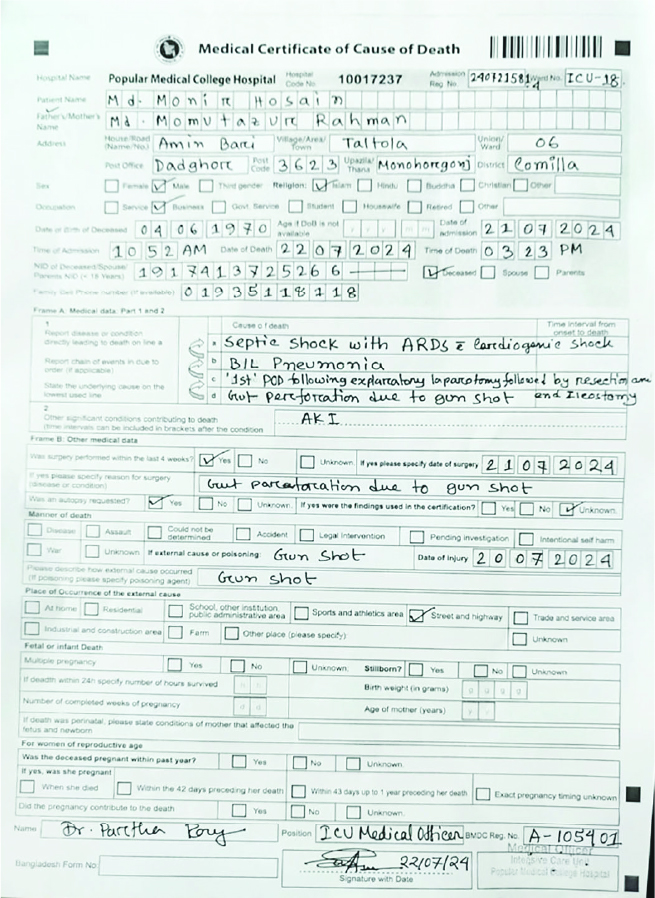 Medical Certificate of Cause of Death
Hospital Name Popular Medical College Hospital Hospital Code No 10017237 Admission Reg. No. Ward No. ICU-18
Patient Name Md. Monir Hosain
Father's/Mother's Name Md. Momutazur Rahman
Address House/Road (Name/No.) Amin Bari Village/Area/Town Taltola Union/Ward 06
Post Office Post Code 3623 Upazila/Thana Monohorgonj District Comilla
Sex Female Male Third gender Religion: Islam Hindu Buddha Christian Other
Occupation Service Business Govt. Service Student Housewife Retired Other
Date of Birth of Deceased 04 06 1970 Age if DoB is not available Date of admission 21 07 2024
Time of Admission 10 52 AM Date of Death 22 07 2024 Time of Death 03 23 PM
NID of Deceased/Spouse/Parents NID (< 18 Years) 1917413725266 Deceased Spouse Parents
Family Cell Phone number (if available) 01935118118
Frame A: Medical data. Part 1 and 2
1 Cause of death Time interval from onset to death
Report disease or condition directly leading to death on line a
a Septic shock with ARDs c̄ Cardiogenic shock
Report chain of events in due to order (if applicable)
b B/L Pneumonia
State the underlying cause on the lowest used line
c '1st' POD following explarcatory laparcotomy followed by resection and Ileostomy
d Gut percforcation due to gun shot
2
Other significant conditions contributing to death (time intervals can be included in brackets after the condition AKI
Frame B: Other medical data
Was surgery performed within the last 4 weeks? Yes No Unknown. If yes please specify date of surgery 21 07 2024
If yes please specify reason for surgery (disease or condition) Gut parcaforcation due to gun shot
Was an autopsy requested? Yes No Unknown. If yes were the findings used in the certification? Yes No Unknown.
Manner of death
Disease Assault Could not be determined Accident Legal Intervention Pending investigation Intentional self harm
War Unknown. If external cause or poisoning: Gun shot Date of injury 20 07 2024
Please describe how external cause occurred (If poisoning please specify poisoning agent) Gun shot
Place of Occurrence of the external cause
At home Residential School, other institution, public administrative area Sports and athletics area Street and highway Trade and service area
Industrial and construction area Farm Other place (please specify) Unknown
Fetal or infant Death
Multiple pregnancy Yes No Unknown: Stillborn? Yes No Unknown.
If deadth within 24h specify number of hours survived Birth weight (in grams)
Number of completed weeks of pregnancy Age of mother (years)
If death was perinatal, please state conditions of mother that affected the fetus and newborn
For women of reproductive age
Was the deceased pregnant within past year? Yes No Unknown.
If yes, was she pregnant
When she died Within the 42 days preceding her death Within 43 days up to 1 year preceding her death Exact pregnancy timing unknown
Did the pregnancy contribute to the death Yes No Unknown.
Name Dr. Parctha Rory Position ICU Medical Officer BMDC Reg. No. A-105401
Medical Officer
Intensive Care Unit
Popular Medical College Hospital
Bangladesh Form No 22/07/24
Signature with Date